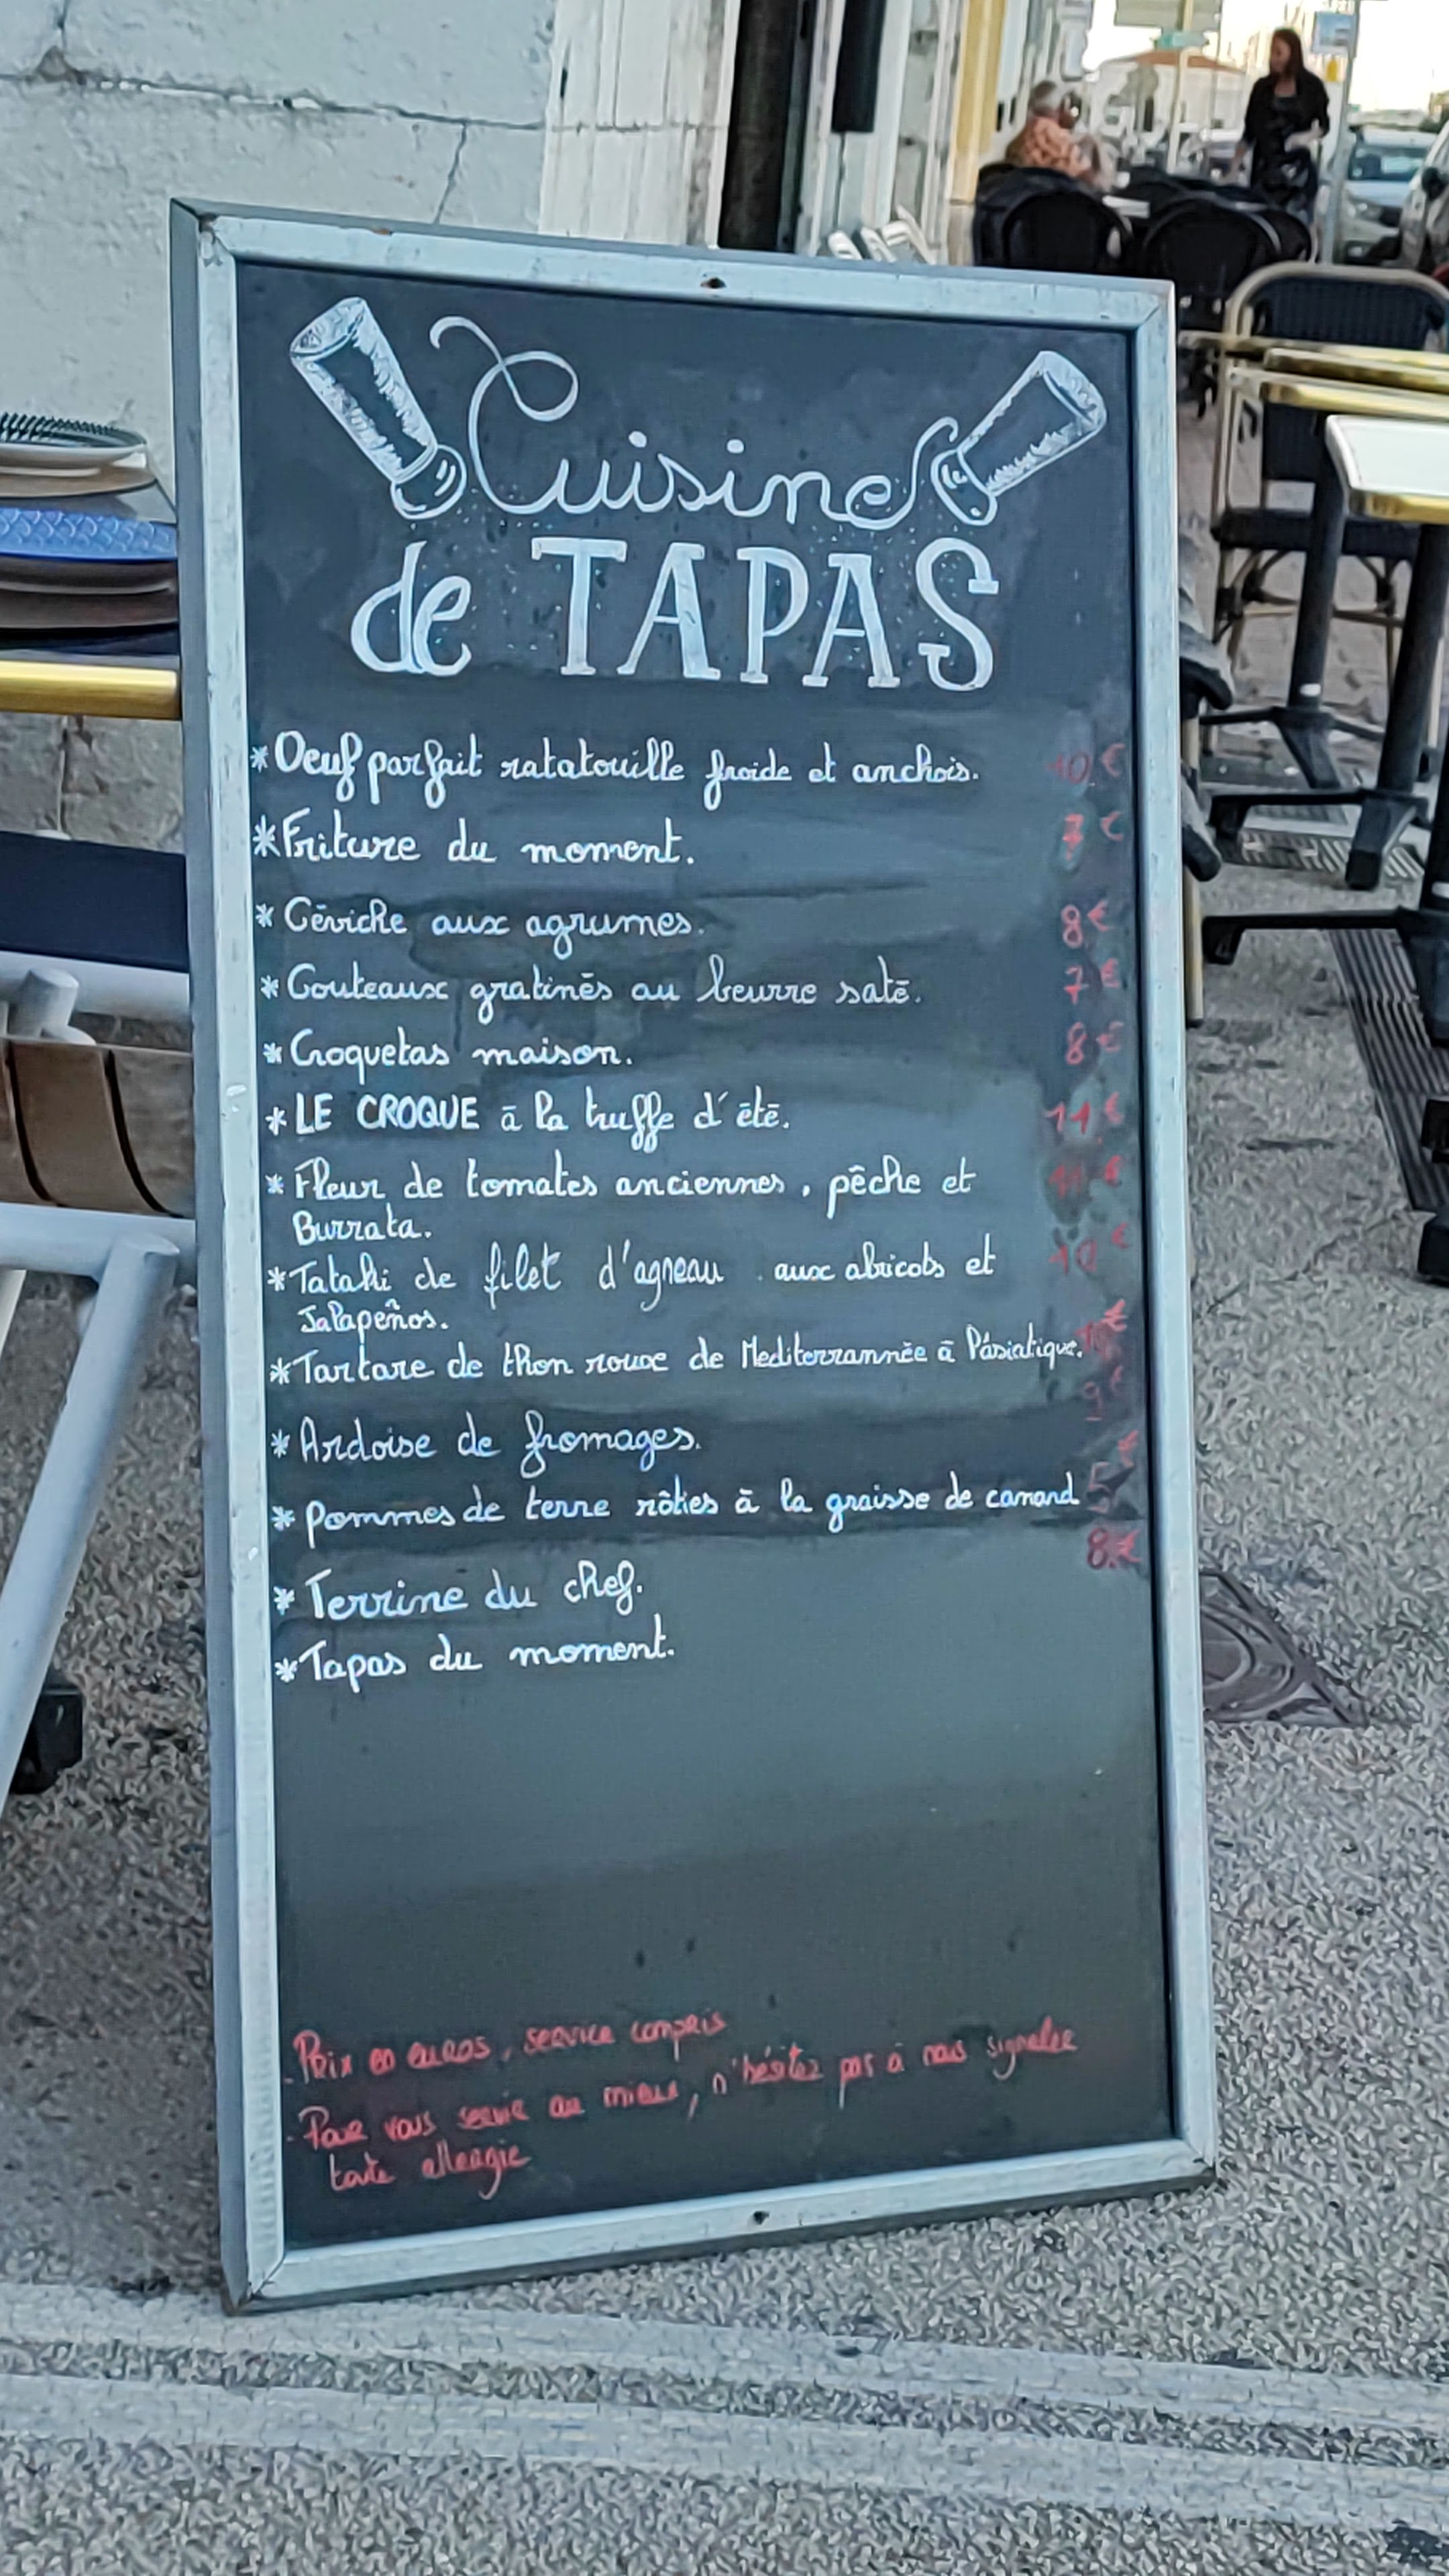 Cuisine
de TAPAS
*Oeuf parfait ratatouille froide et anchois. 10 €
*Friture du moment. 7 €
* Céviche aux agrumes. 8€
* Couteaux gratinés au beurre saté. 7 €
* Croquetas maison. 8€
* LE CROQUE à la truffe d'été. 11 €
* Fleur de tomates anciennes, pêche et €
Burrata.
*Tataki de filet d'agneau aux abricots et 10 €
Jalapeños.
*Tartare de thon rouge de Mediterrannée à l'asiatique. €
* Ardoise de fromages. 9 €
* Pommes de terre rôties à la graisse de canard 5 €
* Terrine du chef. 8 €
*Tapas du moment.
- Prix en euros, service compris
- Pour vous servir au mieux, n'hésitez pas à nous signaler
toute allergie